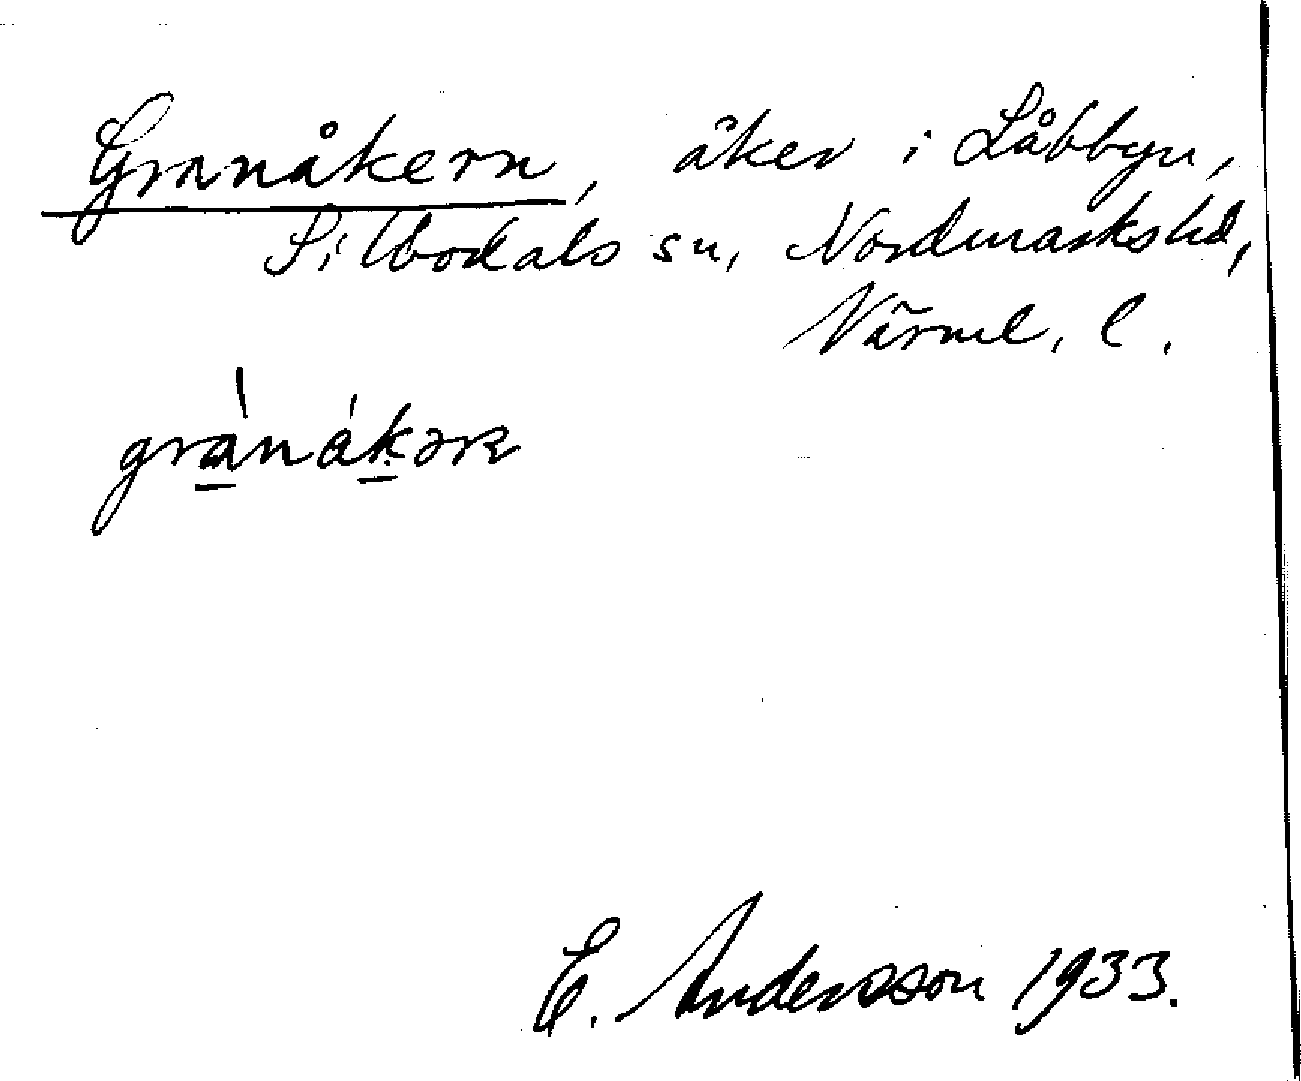 Granåkern, åker i Låbbyn,
Silbodals sn, Nordmarks hd,
Värml. l.
grànákəɴ
E. Andersson 1933.